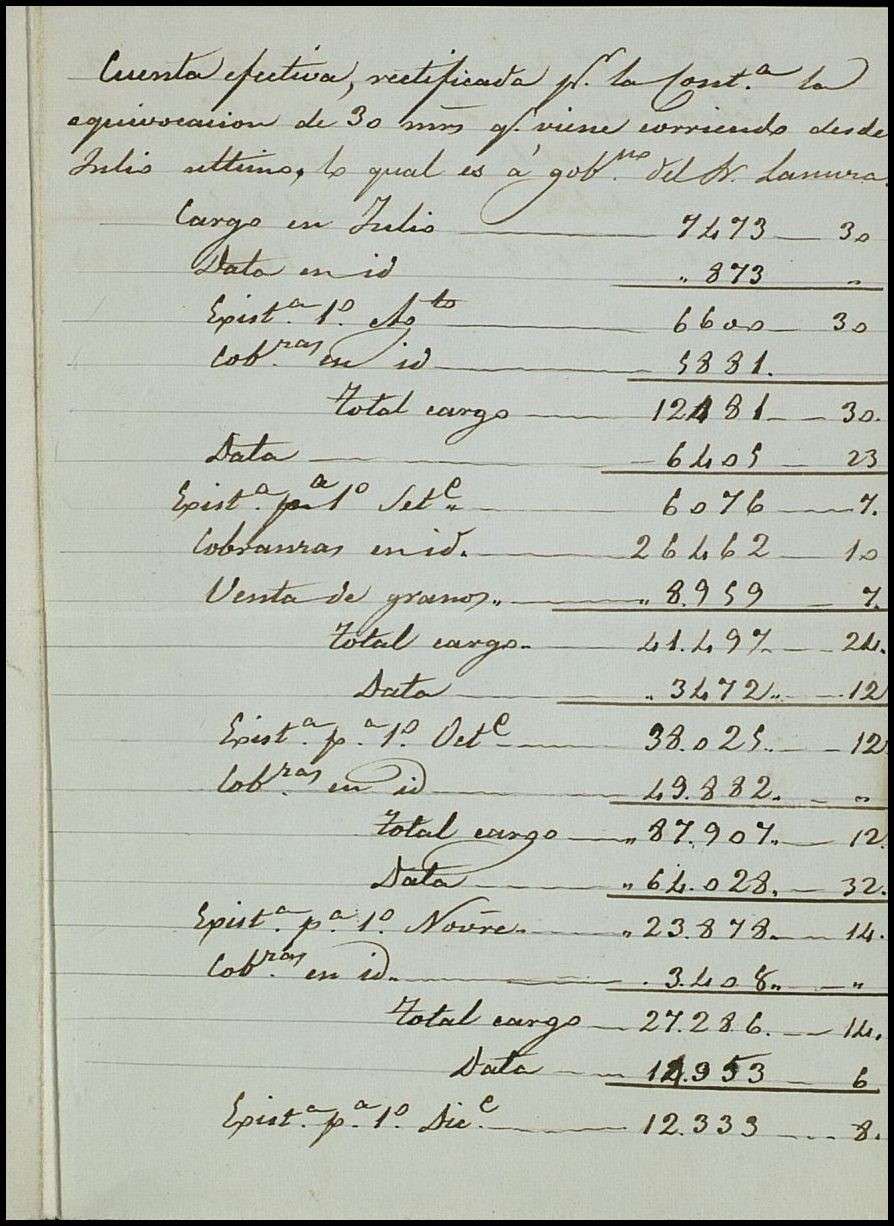 Cuenta efectiva, rectificada p.r la Cont.a la
equivocacion de 30 mrs q.e viene corriendo desde
Julio ultimo, lo qual es á gob.no del Sr.
Cargo en Julio 7473 30
Data en id „ 873 „
Exist.a 1.o Ag.to 6600 30
Cob.ras en id 5881.
Total cargo 12481 30.
Data 6405 23
Exist.a p.a 1.o Set.e 6076 7.
Cobranzas en id. 26462 10
Venta de granos „ „ 8.959 7.
Total cargo. 41.497 24.
Data „ 3472 „ 12
Exist.a p.a 1.o Oct.e 38.025. 12
Cob.ras en id 49.882. „
Total cargo „ 87.907 „ 12.
Data „ 64.028. 32.
Exist.a p.a 1.o Novre. „ 23.878. 14.
Cob.ras en id. . 3.408 „ „
Total cargo 27.286. 14.
Data 14.953 6
Exist.a p.a 1.o Dic.e 12.333 8.